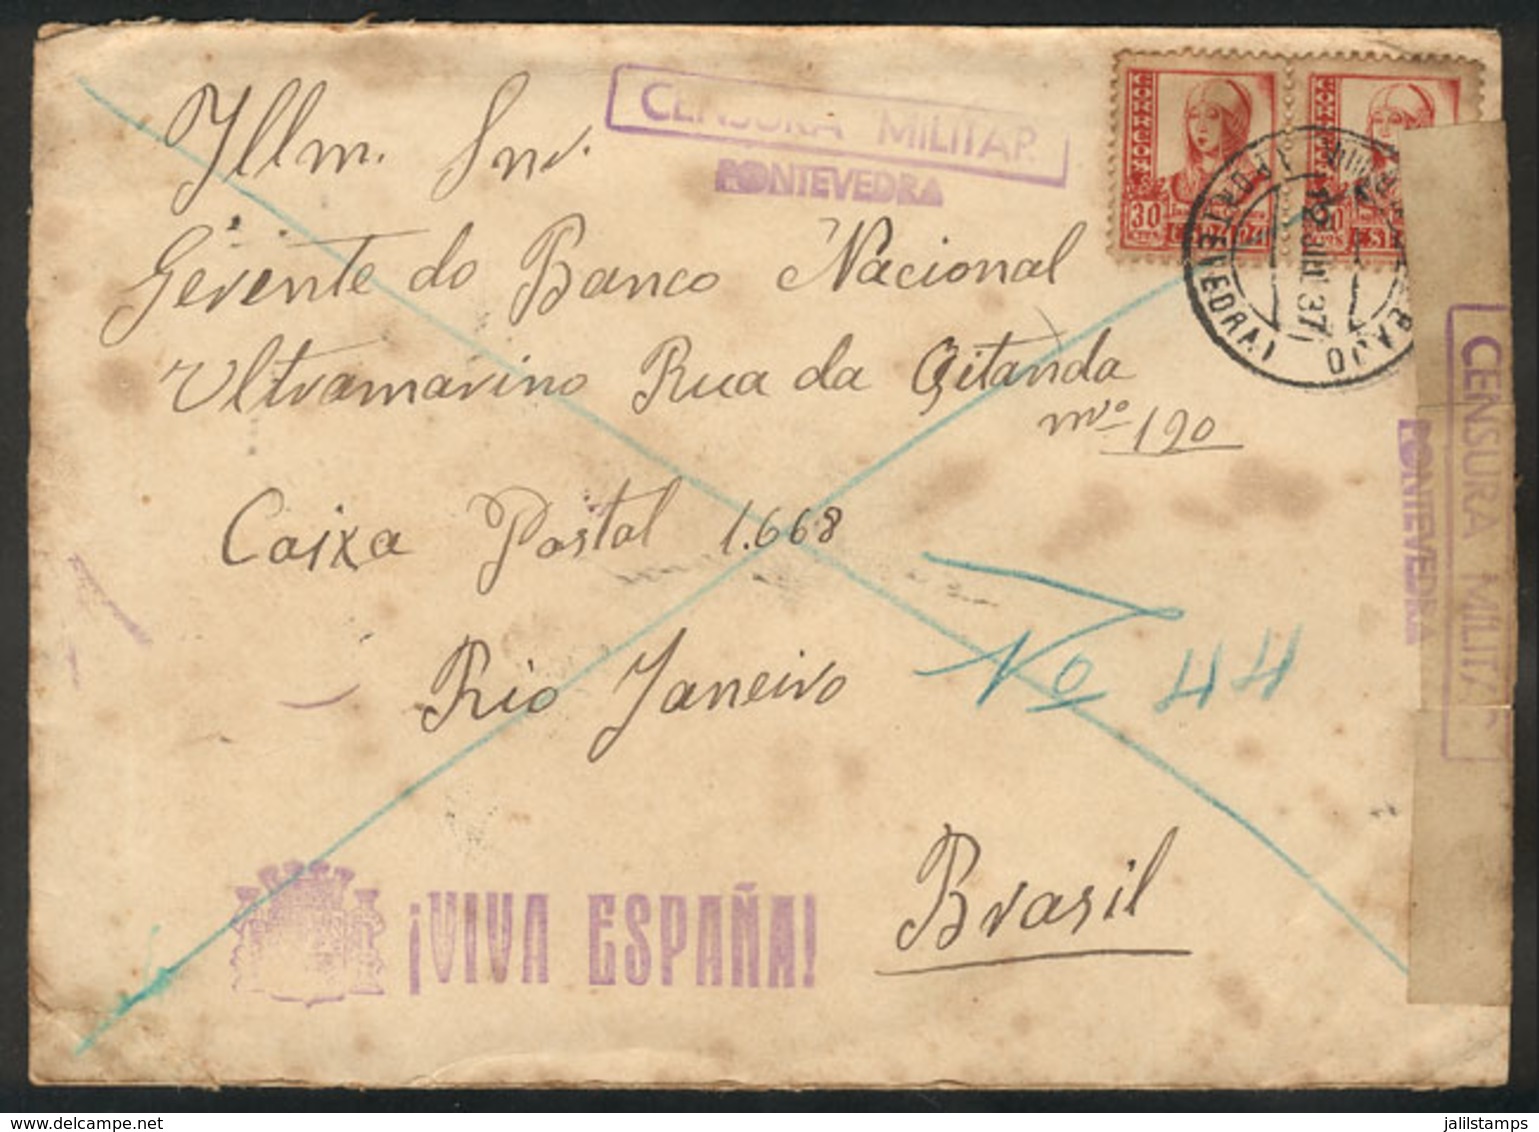 Illm. Snr.
Gerente do Banco Nacional
Ultramarino Rua da Qitanda
nro 120
Caixa Postal 1.668
Rio Janeiro
No 44
Brasil
CENSURA MILITAR
PONTEVEDRA
CORREOS
30
CTS
12 JUL 37
(PONTEVEDRA)
BAJO
CENSURA MILITAR
PONTEVEDRA
¡VIVA ESPAÑA!
jalilstamps